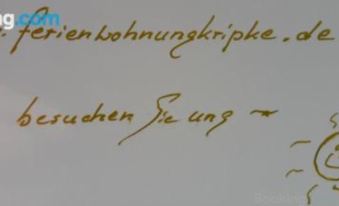 ng.com
. ferienwohnungkripke.de
besuchen Sie uns ~
Booking